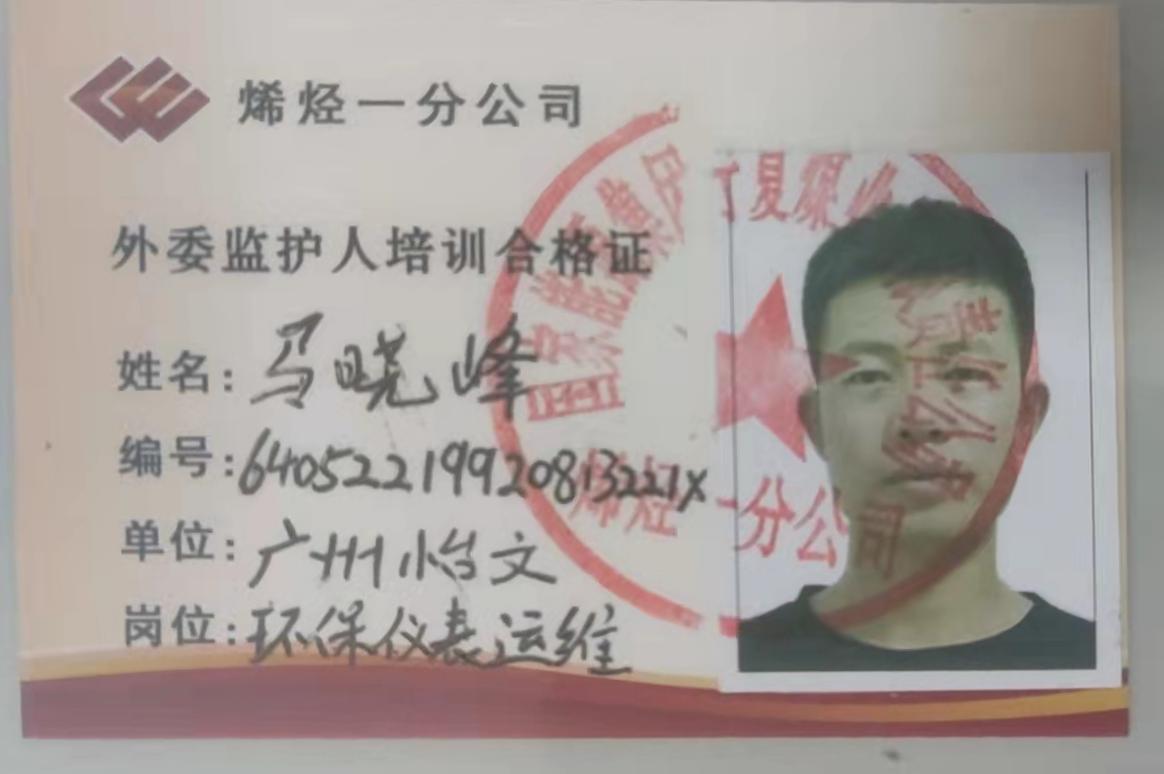 烯烃一分公司
外委监护人培训合格证
姓名:马晓峰
编号:64052219920813221X
单位:广州怡文
岗位:环保仪表运维
国家能源集团宁夏煤业 责任公司
烯烃一分公司